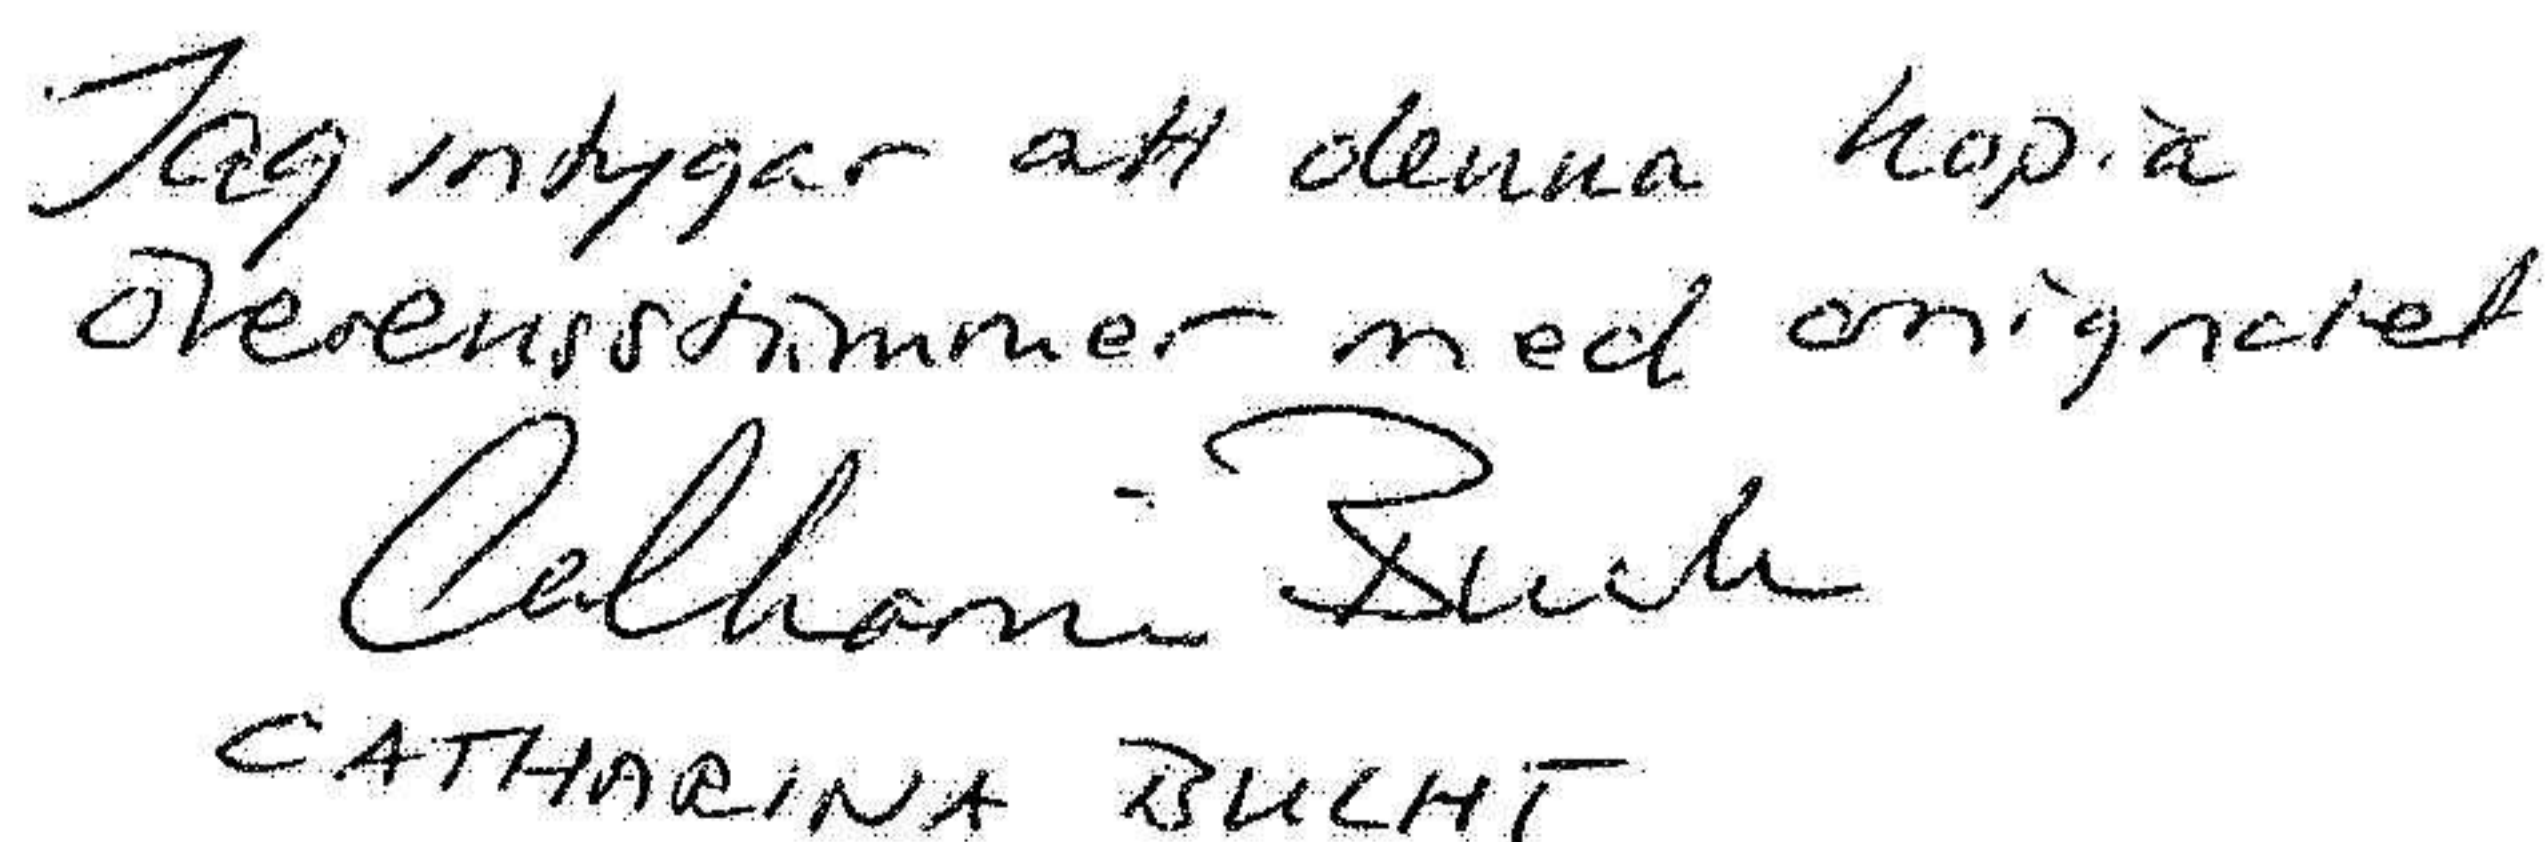 Jag intygar att denna kopia
överensstämmer med orignalet
Catharina Bucht
CATHARINA BUCHT